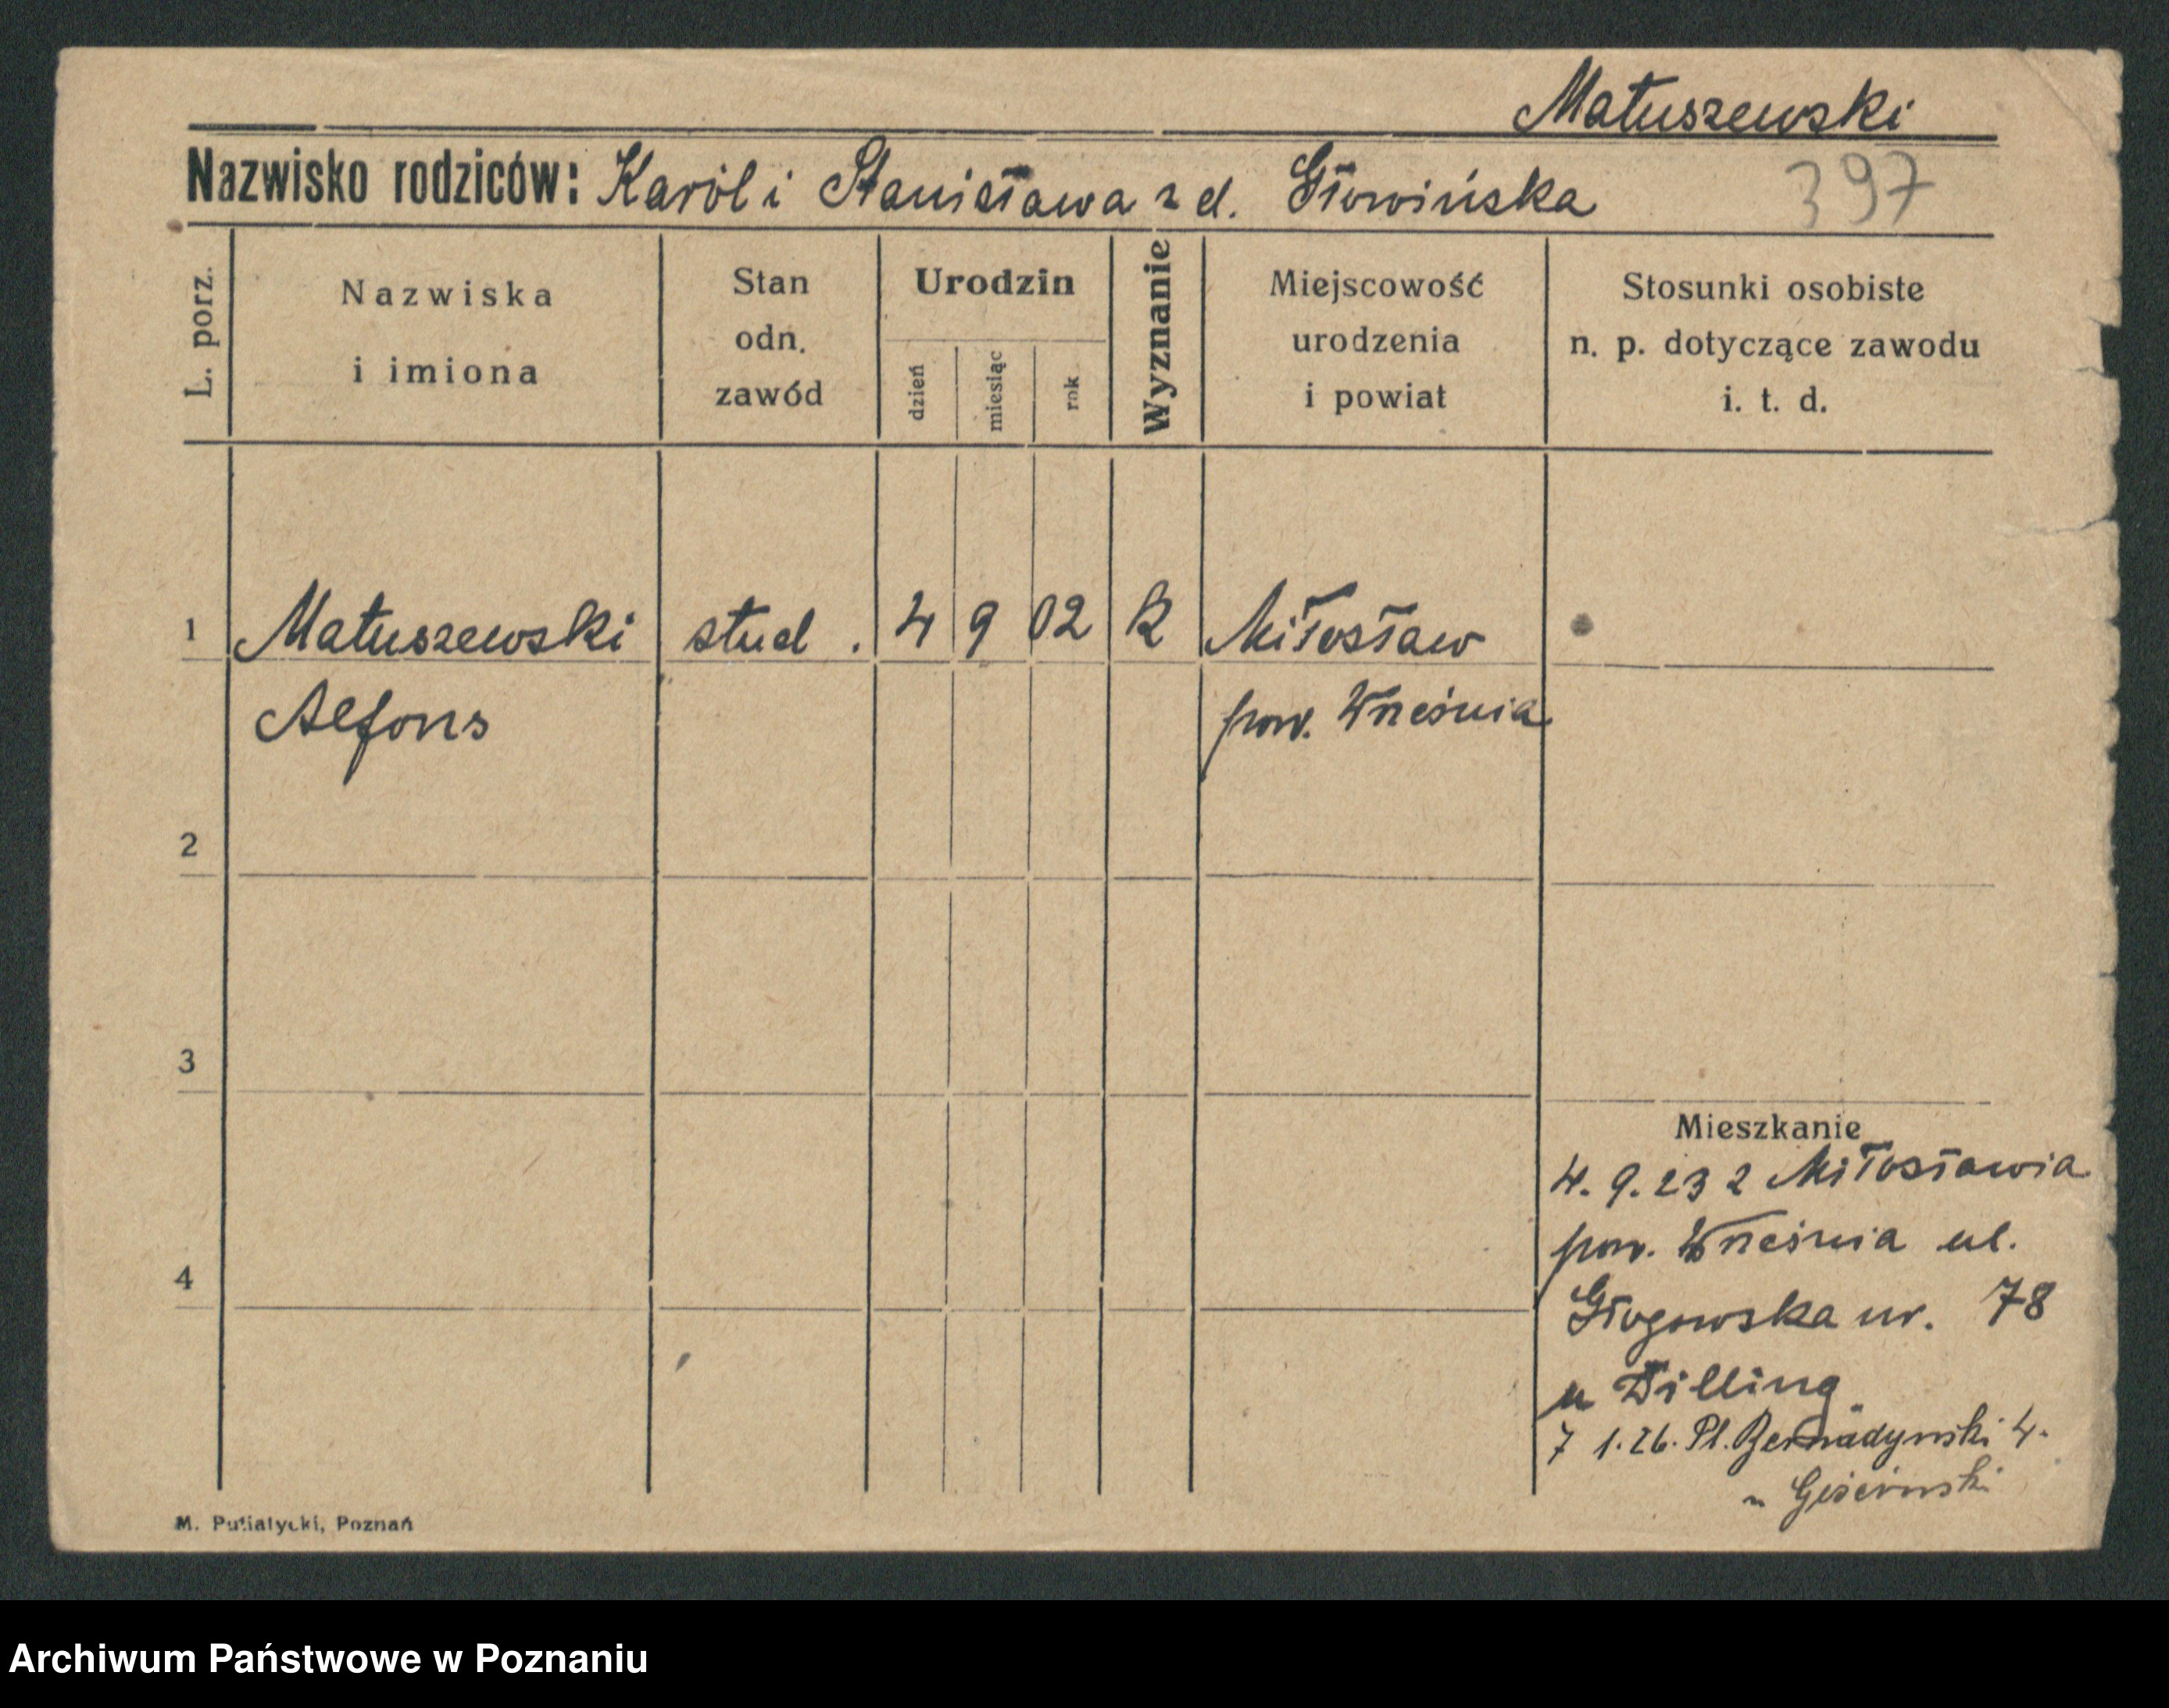 Matuszewski
Nazwisko rodziców: Karól i Stanisława z d. Słowińska
397
L. porz.
Nazwiska
i imiona
Stan
odn.
zawód
Urodzin
dzień
miesiąc
rok
Wyznanie
Miejscowość
urodzenia
i powiat
Stosunki osobiste
n. p. dotyczące zawodu
i. t. d.
1 Matuszewski stud. 4 9 02 R Miłosław
Alfons pow. Września
2
3
Mieszkanie
4. 9. 23 z Miłosławia
pow. Września ul.
4
Głogowska nr. 78
u Dilling
7 1. 26. Pl. Bernadyński 4.
u
M. Putiatycki, Poznań
Archiwum Państwowe w Poznaniu